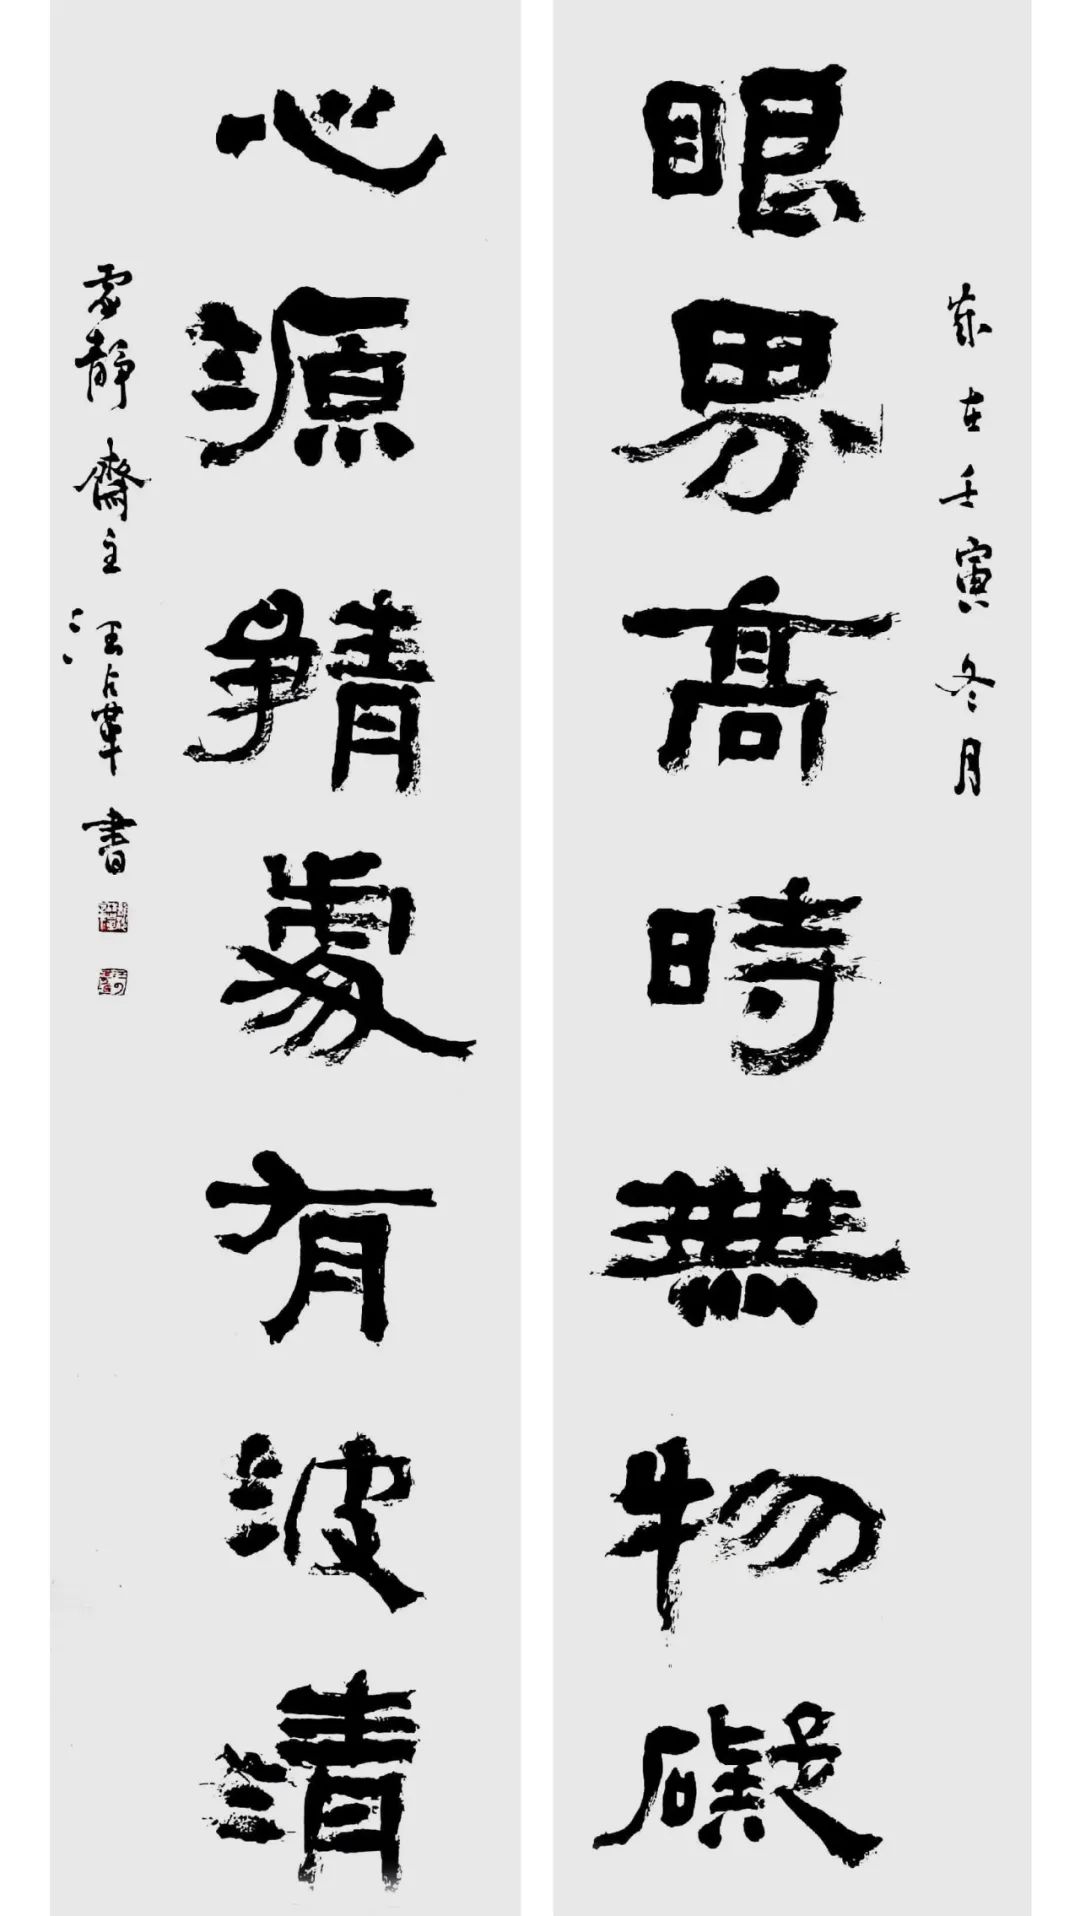 歲在壬寅冬月
眼界高時無物礙
心源靜處有波清
虛靜齋主汪占革書